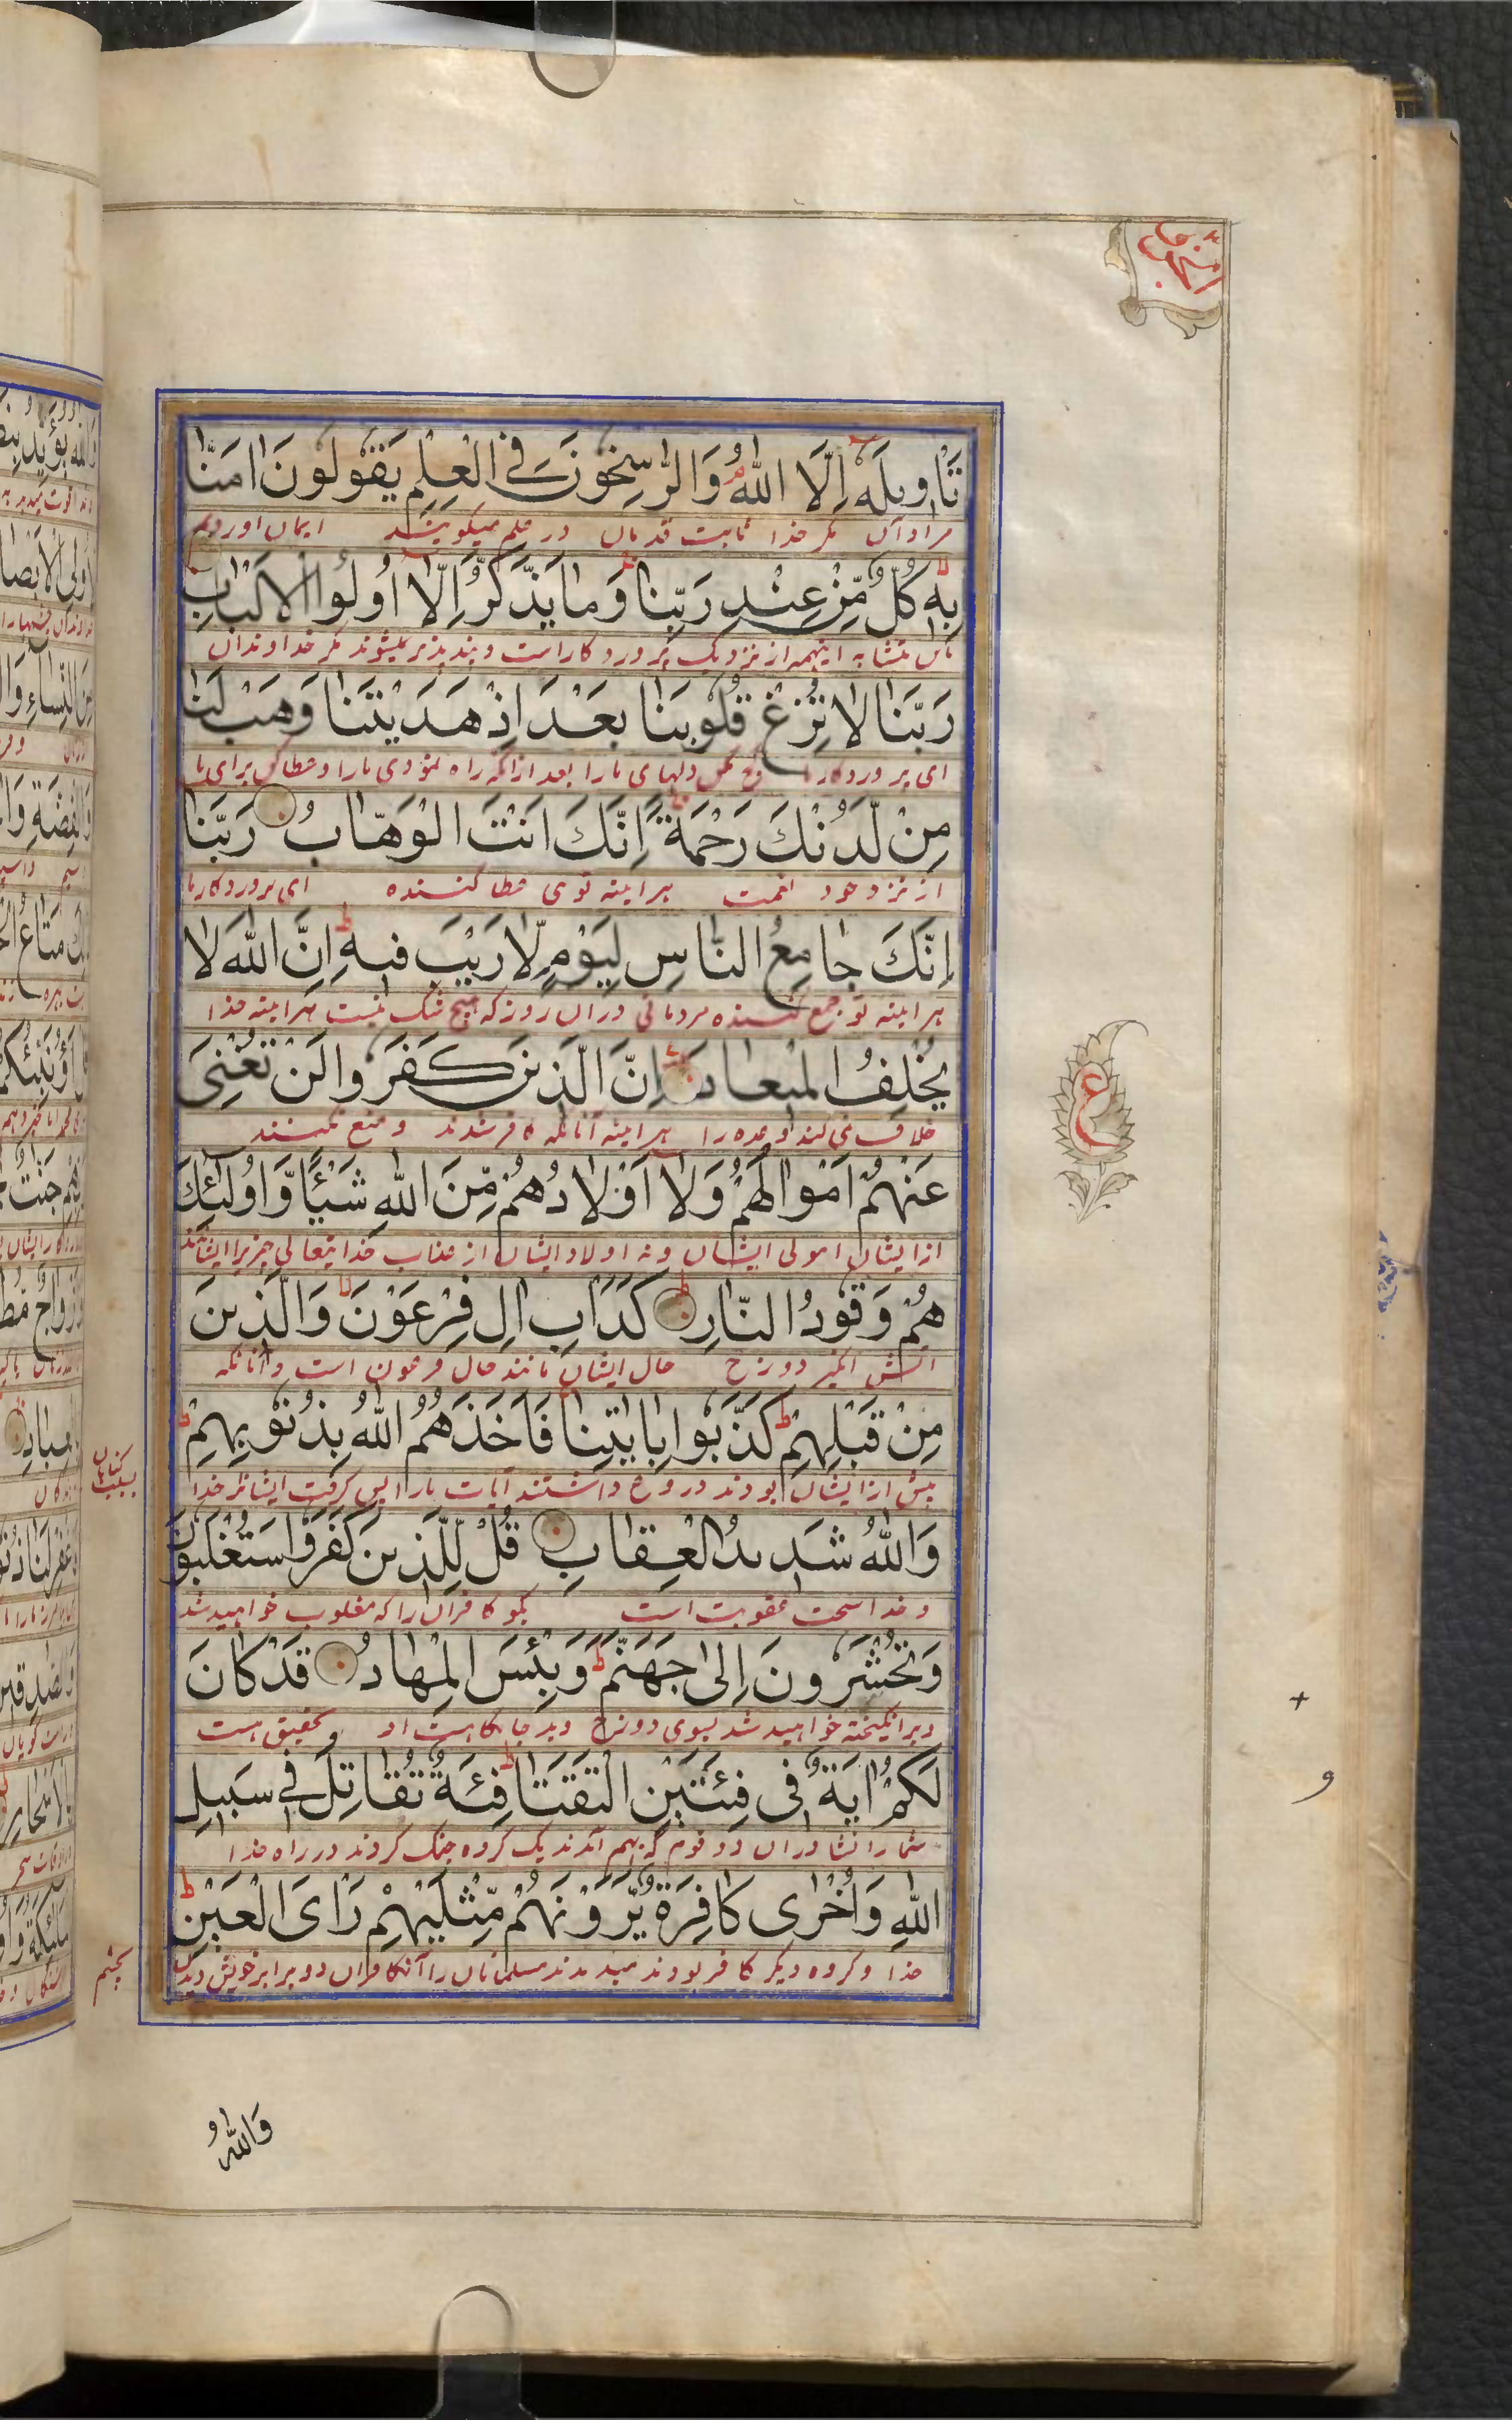 تَأْوِيلَهُ إِلَّا اللَّهُ وَالرَّاسِخُونَ فِي الْعِلْمِ يَقُولُونَ آمَنَّا
مراد آن مگر خدا ثابت قدمان در علم میگویند ایمان اوردیم
بِهِ كُلٌّ مِّنْ عِنْدِ رَبِّنَا وَمَا يَذَّكَّرُ إِلَّا أُولُوا الْأَلْبَابِ
باین متشابه اینهمه از نزدیک پروردکار است و پند پذیر نمیشوند مگر خداوندان
رَبَّنَا لَا تُزِغْ قُلُوبَنَا بَعْدَ إِذْ هَدَيْتَنَا وَهَبْ لَنَا
ای پروردکار ما کج مکن دلهای مارا بعد ازانکه راه نمودی مارا و عطا کن برای ما
مِنْ لَّدُنْكَ رَحْمَةً إِنَّكَ أَنْتَ الْوَهَّابُ رَبَّنَا
از نزد خود نعمت هراینه توی عطا کننده ای پروردکار ما
إِنَّكَ جَامِعُ النَّاسِ لِيَوْمٍ لَّا رَيْبَ فِيهِ إِنَّ اللَّهَ لَا
هراینه تو جمع کننده مردمانی دران روز که هیچ شک نیست هراینه خدا
يُخْلِفُ الْمِيعَادَ إِنَّ الَّذِينَ كَفَرُوا لَنْ تُغْنِيَ
خلاف نمی کند وعده را هراینه آنانکه کافر شدند دفع نکنند
عَنْهُمْ أَمْوَالُهُمْ وَلَا أَوْلَادُهُمْ مِّنَ اللَّهِ شَيْئًا وَّأُولَٰئِكَ
از ایشان اموال ایشان و نه اولاد ایشان از عذاب خدایتعالی چیزیرا ایشانند
هُمْ وَقُودُ النَّارِ كَدَأْبِ آلِ فِرْعَوْنَ وَالَّذِينَ
آتش انگیز دوزخ حال ایشان مانند حال فرعون است و آنانکه
مِنْ قَبْلِهِمْ كَذَّبُوا بِآيَاتِنَا فَأَخَذَهُمُ اللَّهُ بِذُنُوبِهِمْ
پیش از ایشان بودند دروغ داشتند آیات مارا پس گرفت ایشانرا خدا
بسبب گناهان
وَاللَّهُ شَدِيدُ الْعِقَابِ قُلْ لِّلَّذِينَ كَفَرُوا سَتُغْلَبُونَ
و خدا سخت عقوبت است بگو کافران را که مغلوب خواهید شد
وَتُحْشَرُونَ إِلَىٰ جَهَنَّمَ وَبِئْسَ الْمِهَادُ قَدْ كَانَ
و برانگیخته خواهید شد بسوی دوزخ و بد جایگاهست او بتحقیق هست
لَكُمْ آيَةٌ فِي فِئَتَيْنِ الْتَقَتَا فِئَةٌ تُقَاتِلُ فِي سَبِيلِ
شما را نشانی دران دو قوم که بهم آمدند یک گروه جنگ کردند در راه خدا
اللَّهِ وَأُخْرَىٰ كَافِرَةٌ يَّرَوْنَهُمْ مِّثْلَيْهِمْ رَأْيَ الْعَيْنِ
خدا و گروه دیگر کافر بودند میدیدند مسلمانان را آن کافران دو برابر خویش دیدن
بچشم
ع
وَاللهُ